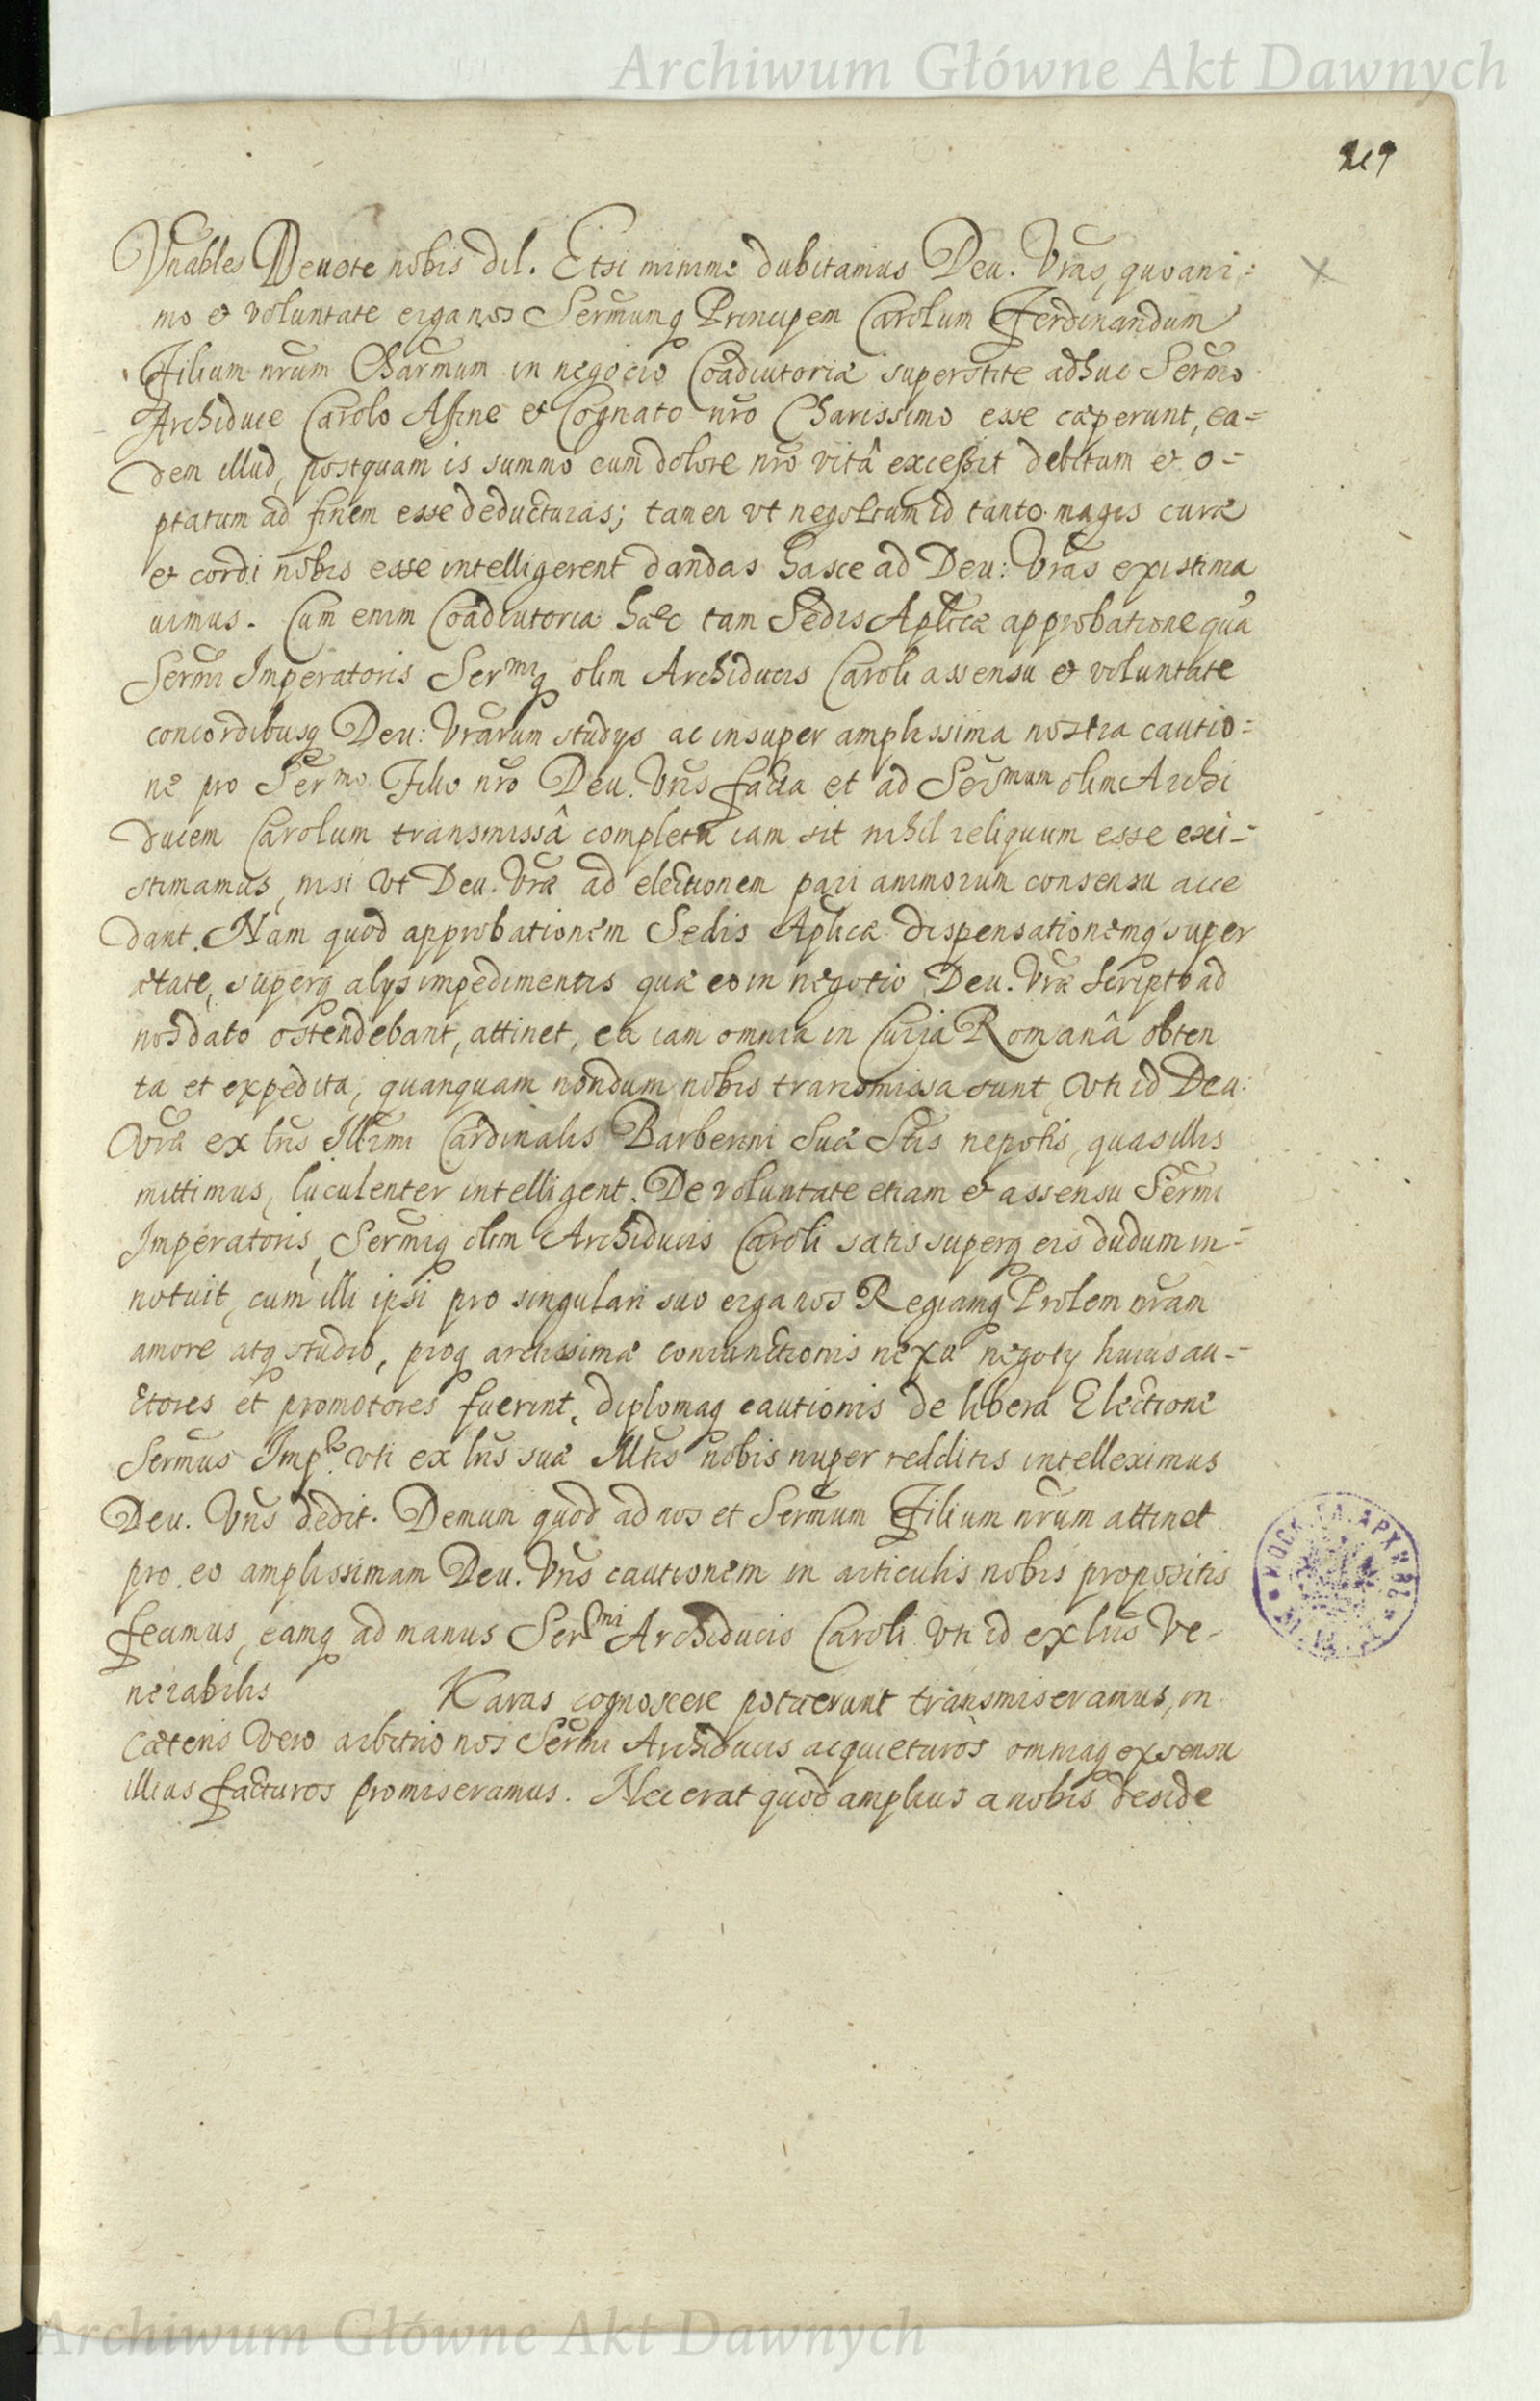 Archiwum Główne Akt Dawnych
219
Vnables Deuote nobis dil. Etsi minime dubitamus Deu. Vras, quo ani-
mo et voluntate erga nos Sermumq Principem Carolum Ferdinandum
Filium nrum Charmum in negocio Coadiutoriæ superstite adhuc Sermo
Archiduce Carolo Affine et Cognato nro Charissimo esse cæperunt, ea-
dem illud, postquam is summo cum dolore nro vitâ exceßit debitum et o-
ptatum ad finem esse deducturas; tamen vt negotium id tanto magis curæ
et cordi nobis esse intelligerent dandas hasce ad Deu: Vras existima
uimus. Cum enim Coadiutoria hæc tam Sedis Aplicæ approbatione quã
Sermi Imperatoris Sermiq olim Archiducis Caroli assensu et voluntate
concordibusq Deu: Vrarum studys ac insuper amplissima nostra cautio-
ne pro Sermo Filio nro Deu. Vris facta et ad Sermum olim Archi
ducem Carolum transmissâ completa iam sit nihil reliquum esse exi-
stimamus, nisi vt Deu. Vræ ad electionem pari animorum consensu acce
dant. Nam quod approbationem Sedis Aplicæ dispensationemq super
ætate, superq alys impedimentis quæ eo in negotio Deu. Vræ scripto ad
nos dato ostendebant, attinet, ea iam omnia in Curia Romanâ obten
ta et expedita, quanquam nondum nobis transmissa sunt, vti id Deu:
Vræ ex lris Illmi Cardinalis Barberini Suæ Stis nepotis, quas illis
mittimus, luculenter intelligent. De voluntate etiam et assensu Sermi
Imperatoris, Sermiq olim Archiducis Caroli satis superq eis dudum in-
notuit, cum illi ipsi pro singulari suo erga nos Regiamq Prolem nram
amore atq studio, proq arctissimæ coniunctionis nexu negoty huius au-
ctores et promotores fuerint, diplomaq cautionis de libera Electione
Sermus Impr. vti ex lris suæ Mtis nobis nuper redditis intelleximus
Deu. Vris dedit. Demum quod ad nos et Sermum Filium nrum attinet
pro eo amplissimam Deu. Vris cautionem in articulis nobis propositis
fecimus, eamq ad manus Sermi Archiducis Caroli vti id ex lris Ve-
nerabilis Karas cognoscere potuerunt transmiseramus, in
cæteris vero arbitrio nos Sermi Archiducis acquieturos omniaq ex sensu
illius facturos promiseramus. Nec erat quod amplius a nobis deside
Archiwum Główne Akt Dawnych